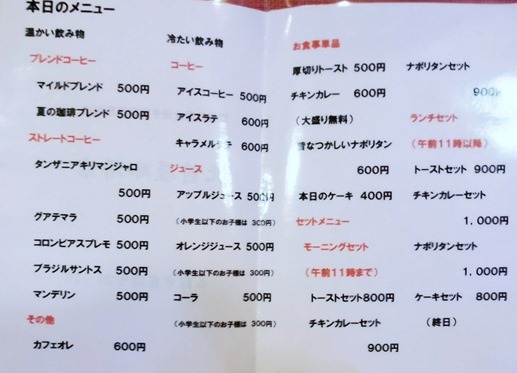 本日のメニュー
温かい飲み物
ブレンドコーヒー
マイルドブレンド 500円
夏の珈琲ブレンド 500円
ストレートコーヒー
タンザニアキリマンジャロ
500円
グアテマラ 500円
コロンビアスプレモ 500円
ブラジルサントス 500円
マンデリン 500円
その他
カフェオレ 600円
冷たい飲み物
コーヒー
アイスコーヒー 500円
アイスラテ 600円
キャラメルラテ 600円
ジュース
アップルジュース 500円
(小学生以下のお子様は 300円)
オレンジジュース 500円
(小学生以下のお子様は 300円)
コーラ 500円
(小学生以下のお子様は 300円)
お食事単品
厚切りトースト 500円
チキンカレー 600円
(大盛り無料)
昔なつかしいナポリタン
600円
本日のケーキ 400円
セットメニュー
モーニングセット
(午前11時まで)
トーストセット800円
チキンカレーセット
900円
ナポリタンセット
900円
ランチセット
(午前11時以降)
トーストセット 900円
チキンカレーセット
1,000円
ナポリタンセット
1,000円
ケーキセット 800円
(終日)